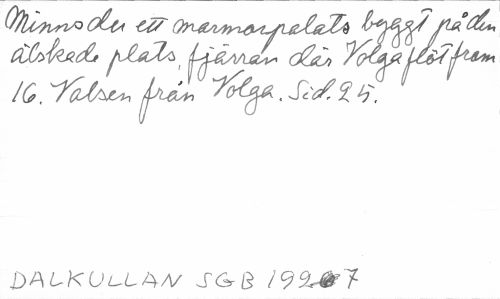 Minns du ett marmorpalats byggt på den
älskade plats, fjärran där Volga flöt fram
16. Valsen från Volga. Sid. 25.
DALKULLAN SGB 1997